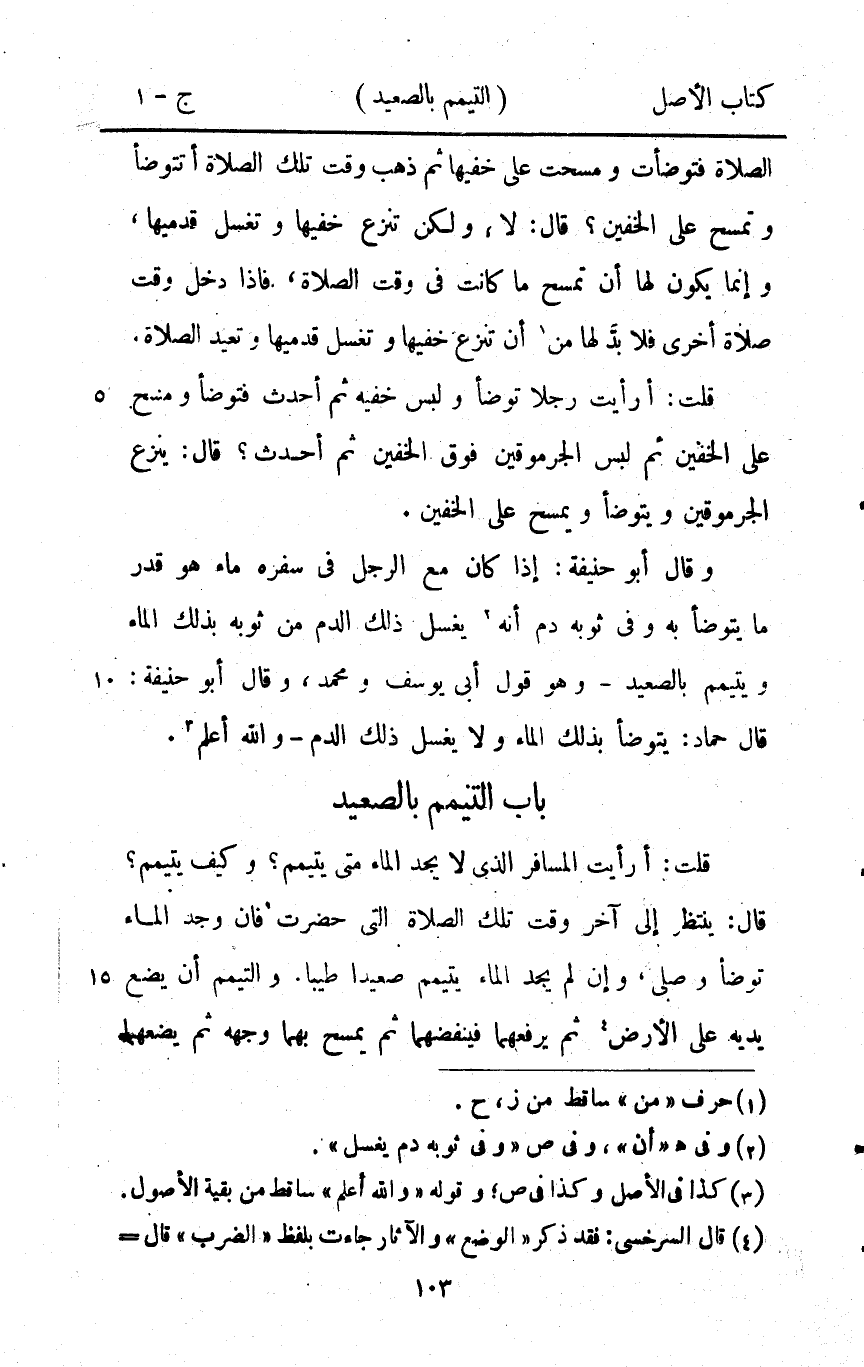 كتاب الأصل (التيمم بالصعيد) ج - ١
الصلاة فتوضأت و مسحت على خفيها ثم ذهب وقت تلك الصلاة أ تتوضأ
و تمسح على الخفين؟ قال: لا، و لكن تنزع خفيها و تغسل قدميها،
و إنما يكون لها أن تمسح ما كانت فى وقت الصلاة، فاذا دخل وقت
صلاة أخرى فلا بدَّ لها من١ أن تنزع خفيها و تغسل قدميها و تعيد الصلاة.
قلت: أ رأيت رجلا توضأ و لبس خفيه ثم أحدث فتوضأ و مسح ٥
على الخفين ثم لبس الجرموقين فوق الخفين ثم أحدث؟ قال: ينزع
الجرموقين و يتوضأ و يمسح على الخفين.
و قال أبو حنيفة: إذا كان مع الرجل فى سفره ماء هو قدر
ما يتوضأ به و فى ثوبه دم أنه٢ يغسل ذلك الدم من ثوبه بذلك الماء
و يتيمم بالصعيد - و هو قول أبى يوسف و محمد، و قال أبو حنيفة: ١٠
قال حماد: يتوضأ بذلك الماء و لا يغسل ذلك الدم - و الله أعلم٣.
باب التيمم بالصعيد
قلت: أ رأيت المسافر الذى لا يجد الماء متى يتيمم؟ و كيف يتيمم؟
قال: ينتظر إلى آخر وقت تلك الصلاة التى حضرت فان وجد الماء
توضأ و صلى، و إن لم يجد الماء يتيمم صعيدا طيبا. و التيمم أن يضع ١٥
يديه على الأرض٤ ثم يرفعهما فينفضهما ثم يمسح بهما وجهه ثم يضعهما
(١) حرف «من» ساقط من ز، ح.
(٢) و فى ه «أن»، و فى ص «و فى ثوبه دم يغسل».
(٣) كذا فى الأصل و كذا فى ص؛ و قوله «و الله أعلم» ساقط من بقية الأصول.
(٤) قال السرخسى: فقد ذكر «الوضع» و الآثار جاءت بلفظ «الضرب» قال =
١٠٣